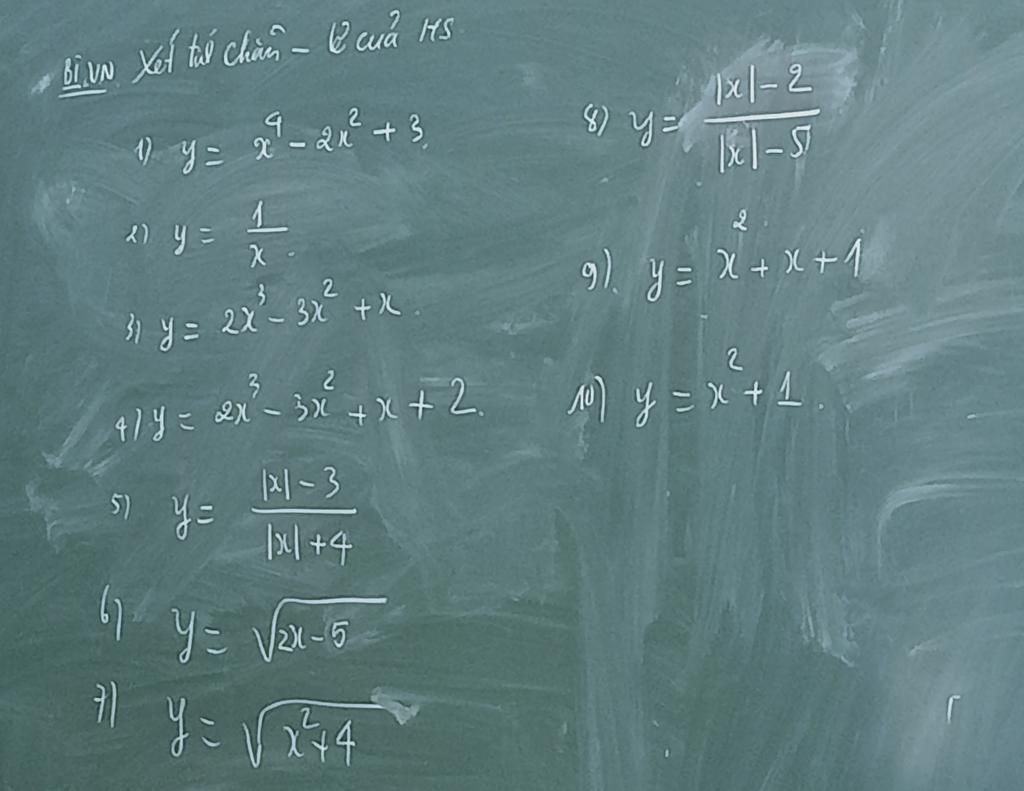 BT.VN Xét tính chẵn - lẻ của HS
1) y = x⁴ - 2x² + 3.
2) y = 1/x.
3) y = 2x³ - 3x² + x.
4) y = 2x³ - 3x² + x + 2.
5) y = (|x| - 3)/(|x| + 4)
6) y = √(2x-5)
7) y = √(x²+4)
8) y = (|x| - 2)/(|x| - 5)
9). y = x² + x + 1
10) y = x² + 1.